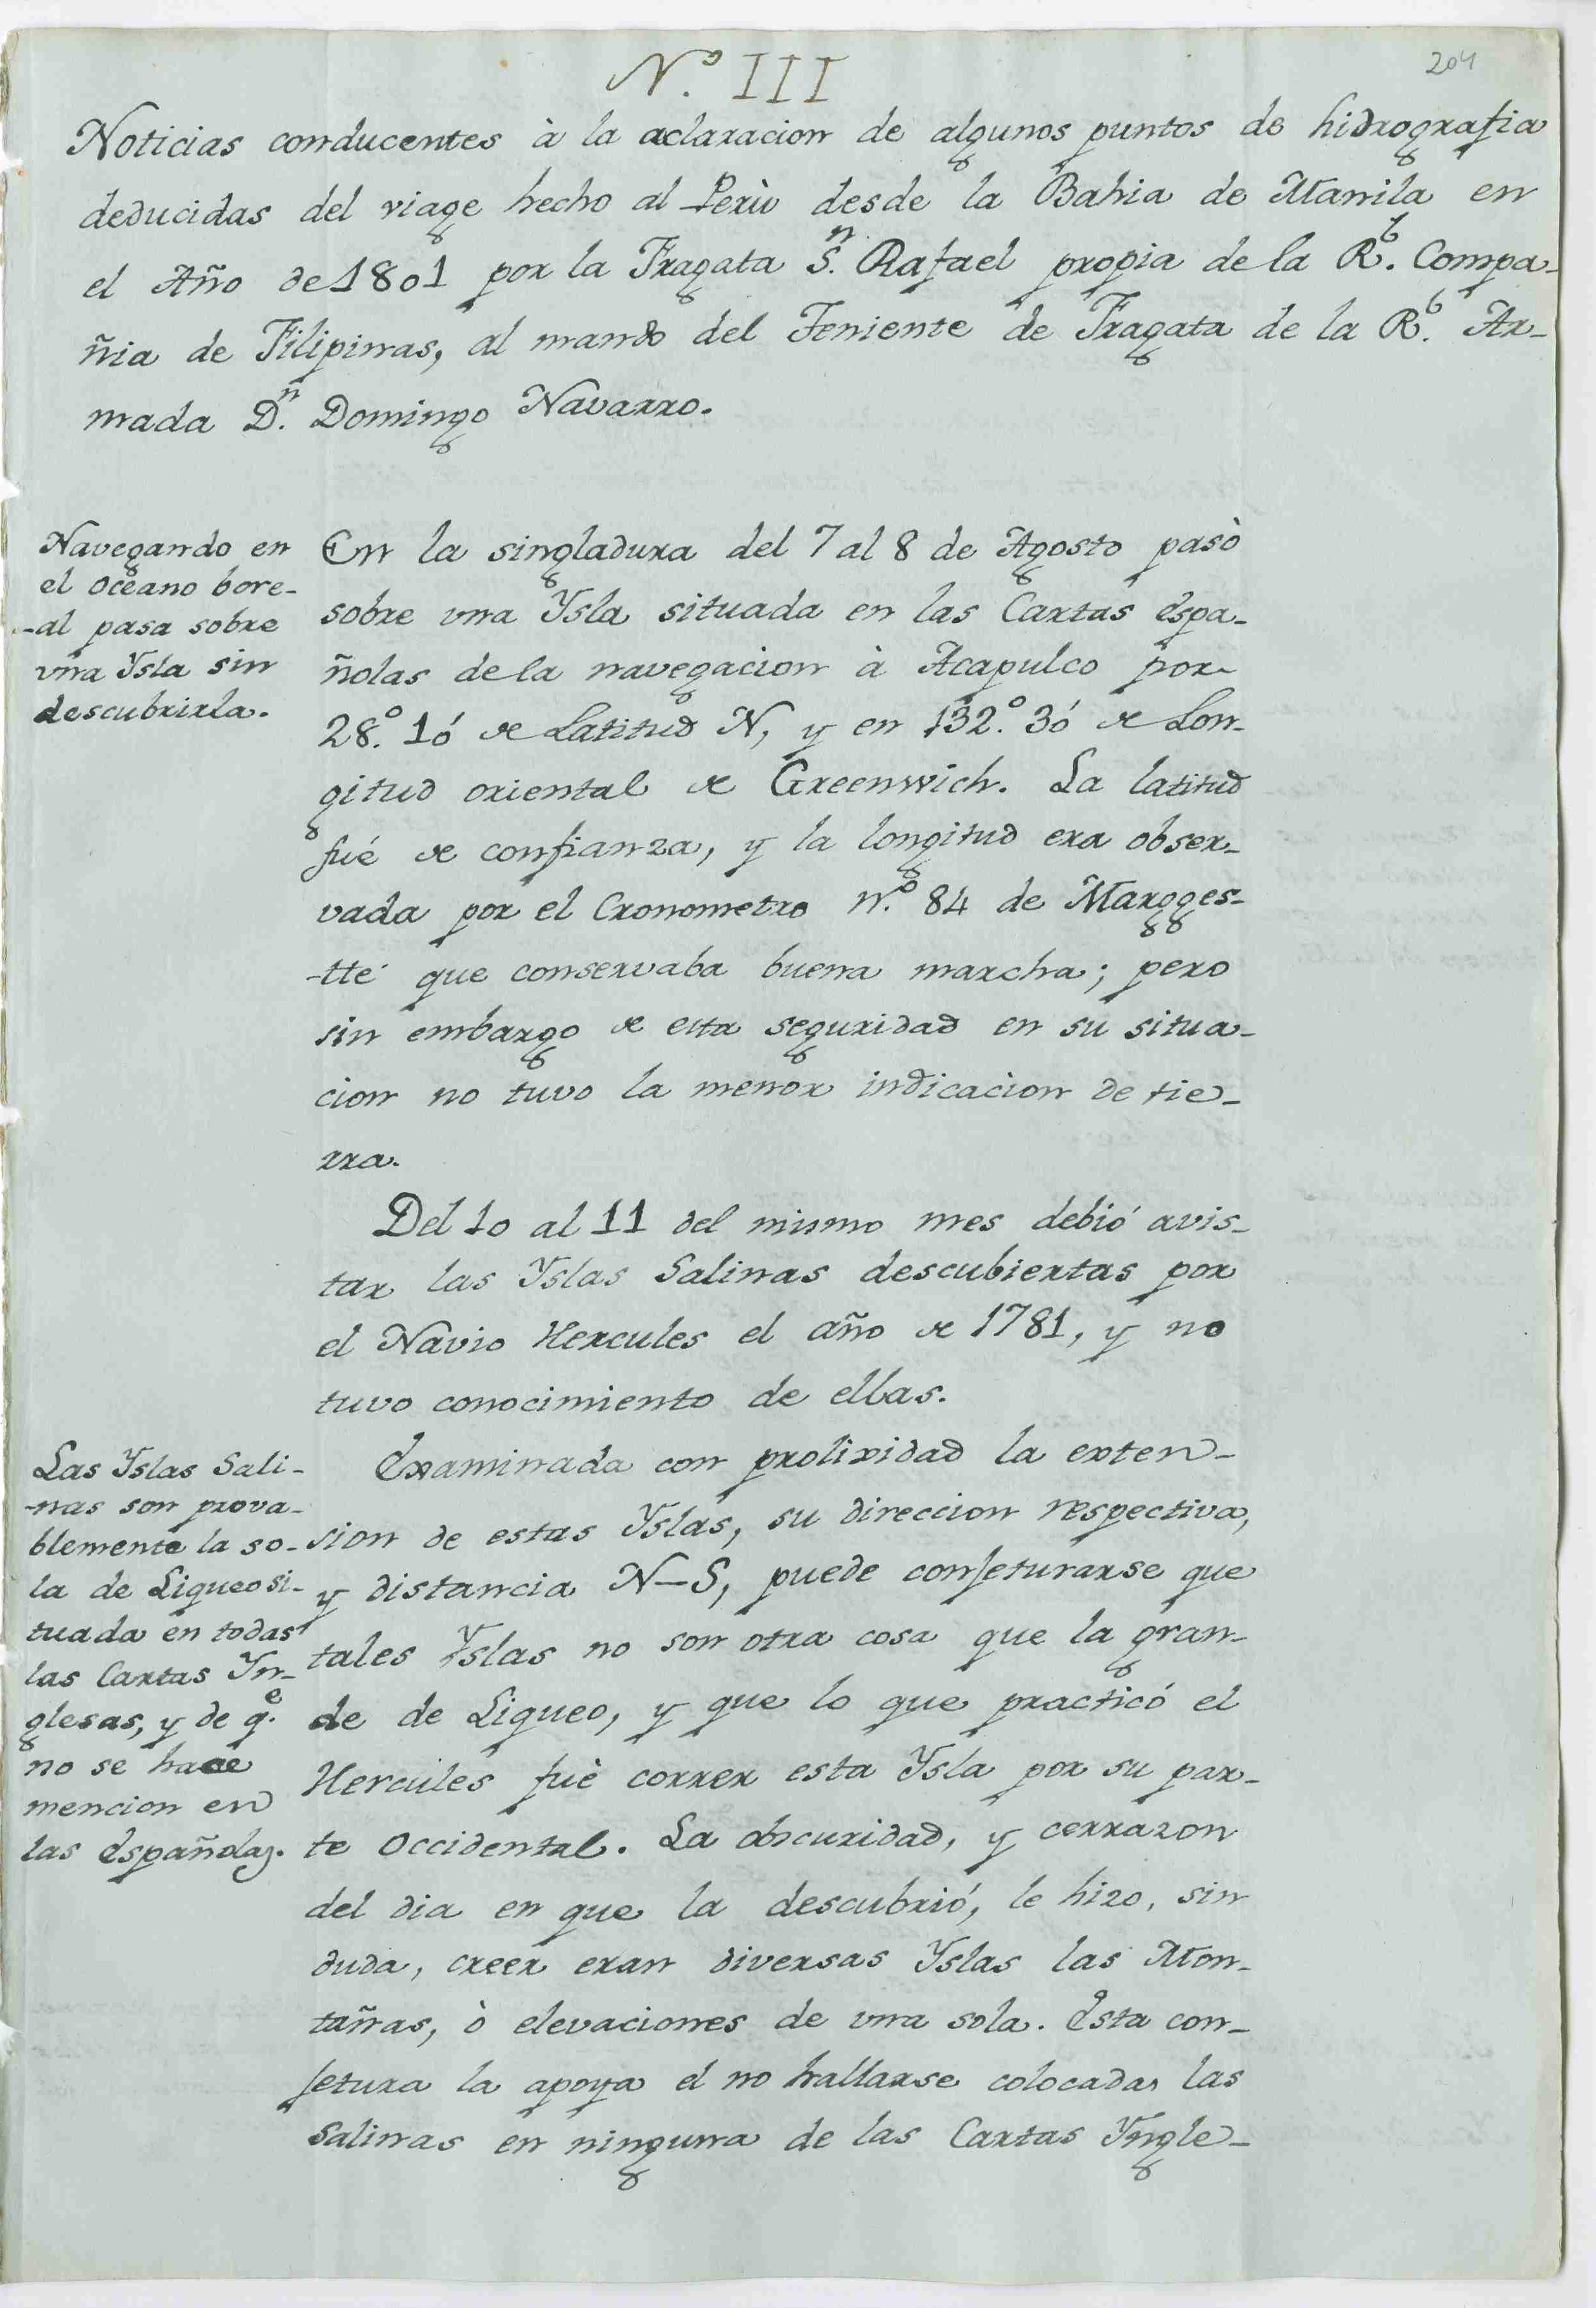 N.º III
204
Noticias conducentes à la aclaracion de algunos puntos de hidrografia
deducidas del viage hecho al Perù desde la Bahia de Manila en
el Año de 1801 por la Fragata S.n Rafael propia de la R.l Compa-
ñia de Filipinas, al mando del Teniente de Fragata de la R.l Ar-
mada D.n Domingo Navarro.
Navegando en
el Oceano bore-
-al pasa sobre
una Ysla sin
descubrirla.
En la singladura del 7 al 8 de Agosto pasò
sobre una Ysla situada en las Cartas espa-
ñolas de la navegacion à Acapulco por
28.º 10' de Latitud N, y en 132.º 30' de Lon-
gitud oriental de Greenwich. La latitud
fué de confianza, y la longitud era obser-
vada por el Cronometro n.º 84 de Margges-
-tté que conservaba buena marcha; pero
sin embargo de esta seguridad en su situa-
cion no tuvo la menor indicacion de tie-
rra.
Del 10 al 11 del mismo mes debió avis-
tar las Yslas Salinas descubiertas por
el Navio Hercules el año de 1781, y no
tuvo conocimiento de ellas.
Las Yslas Sali-
-nas son prova-
blemente la so-
la de Liqueo si-
tuada en todas
las Cartas Yn-
glesas, y de q.e
no se hace
mencion en
las españolas.
Examinada con prolixidad la exten-
sion de estas Yslas, su direccion respectiva,
y distancia N-S, puede conjeturarse que
tales Yslas no son otra cosa que la gran-
de de Liqueo, y que lo que practicó el
Hercules fuè correr esta Ysla por su par-
te Occidental. La obscuridad, y cerrazon
del dia en que la descubrió, le hizo, sin
duda, creer eran diversas Yslas las Mon-
tañas, ò elevaciones de una sola. Esta con-
jetura la apoya el no hallarse colocadas las
Salinas en ninguna de las Cartas Yngle-